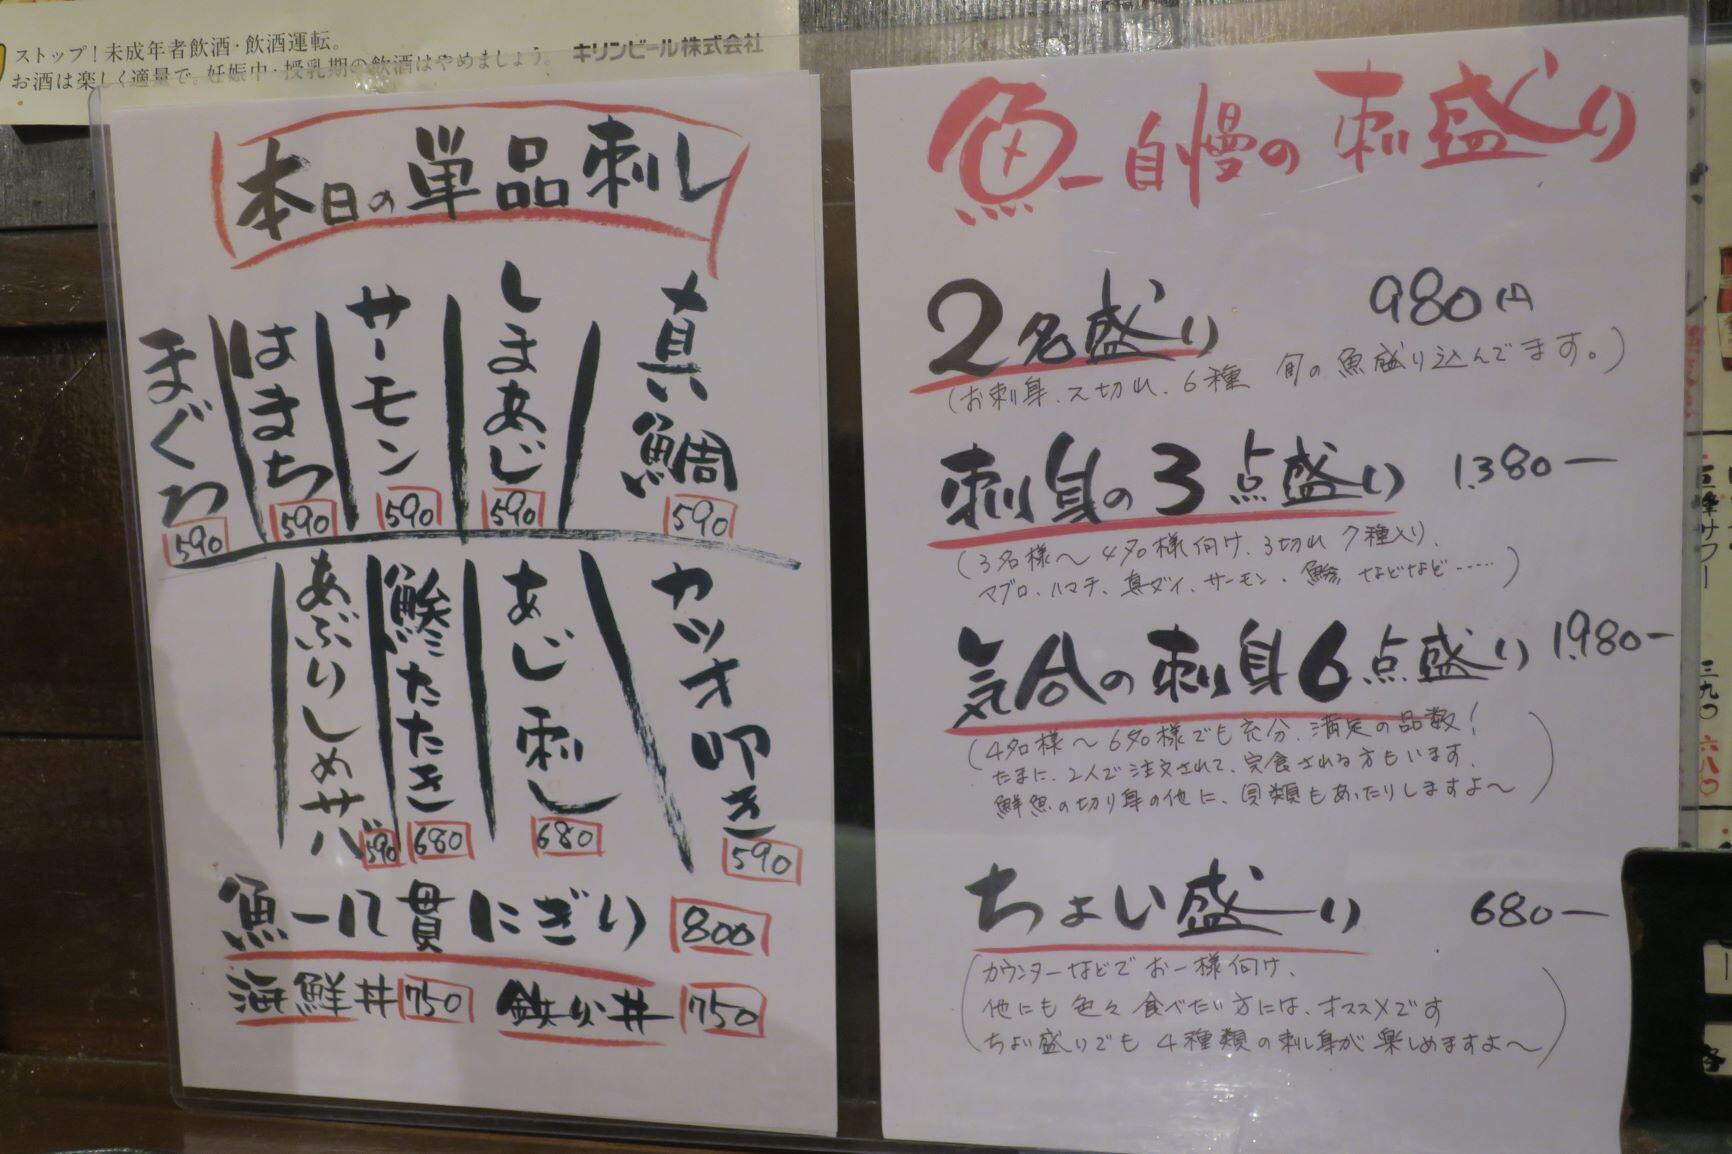 ストップ!未成年者飲酒・飲酒運転。
お酒は楽しく適量で。妊娠中・授乳期の飲酒はやめましょう。 キリンビール株式会社
本日の単品刺し
真鯛 590
しまあじ 590
サーモン 590
はまち 590
まぐろ 590
カツオ叩き 590
あじ刺し 680
鯵たたき 680
あぶりしめサバ 590
魚一八貫にぎり 800
海鮮丼 750 鉄火丼 750
魚一自慢の刺盛り
2名盛り 980円
(お刺身、2切れ、6種 旬の魚盛り込んでます。)
刺身の3点盛り 1.380ー
(3名様〜4名様向け、3切れ 7種入り、
マグロ、ハマチ、真ダイ、サーモン、鯵 などなど……)
気合の刺身6点盛り 1.980ー
(4名様〜6名様でも充分、満足の品数!
たまに、2人で注文されて、完食される方もいます。
鮮魚の切り身の他に、貝類もあったりしますよ〜)
ちょい盛り 680ー
(カウンターなどでお一様向け、
他にも色々食べたい方には、オススメです
ちょい盛りでも 4種類の刺し身が楽しめますよ〜)